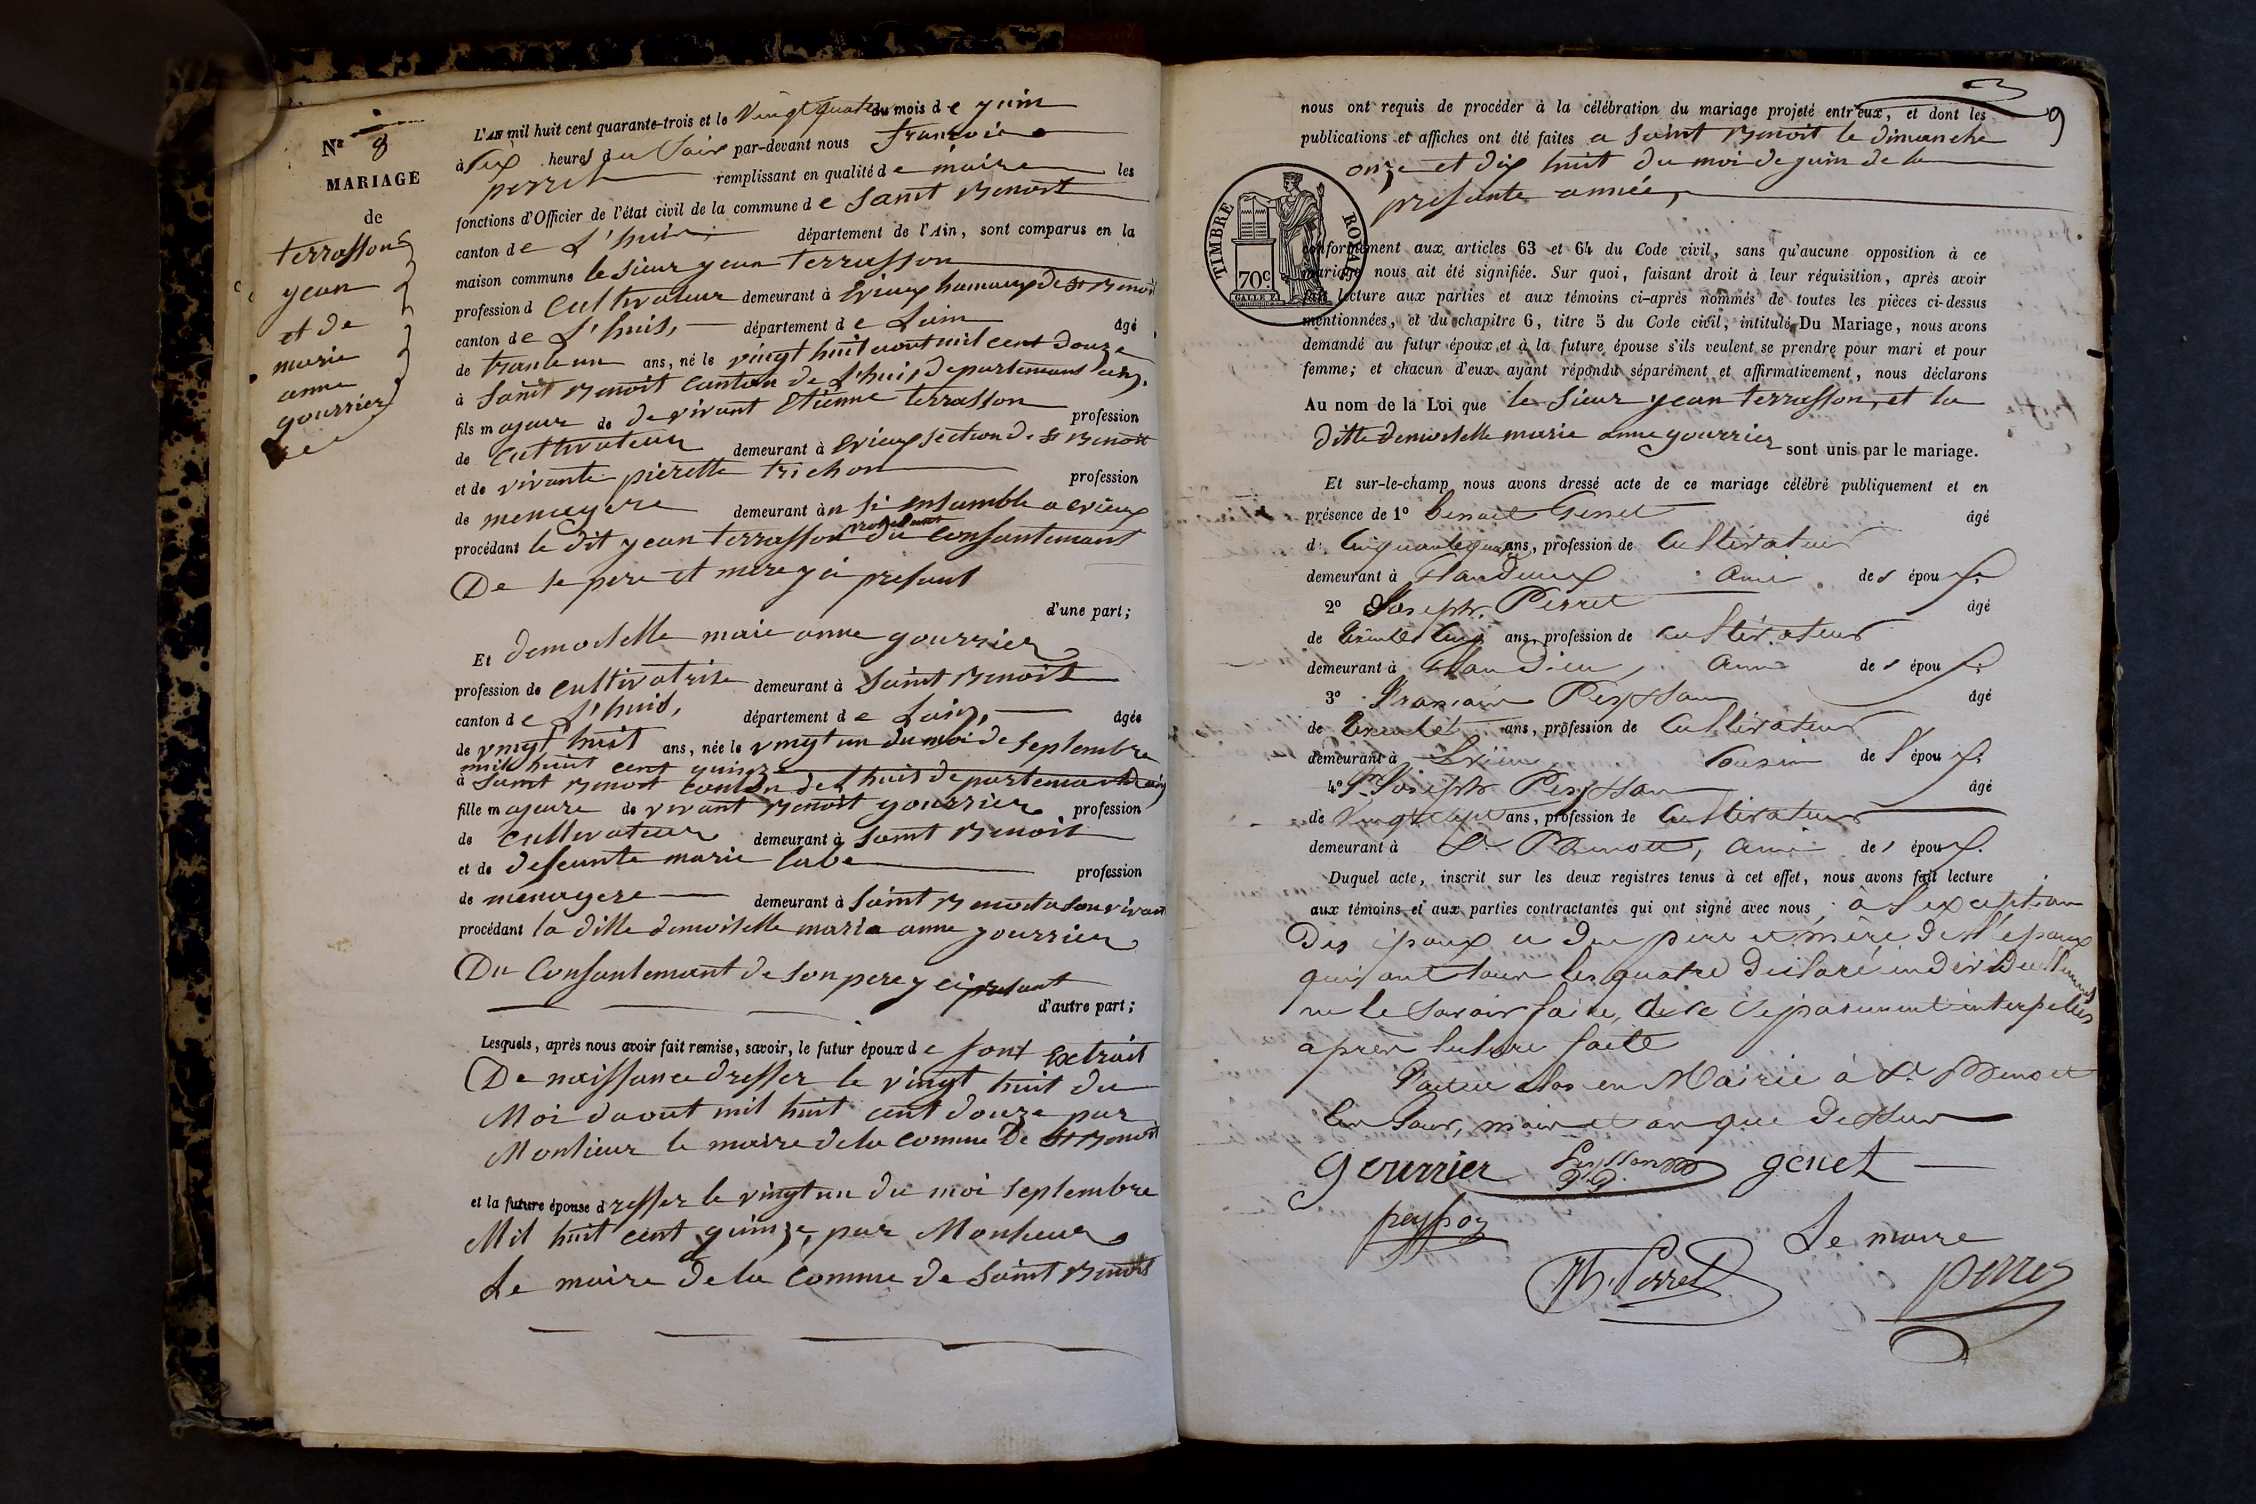 Nº 8
MARIAGE
de
terrasson
jean
et de
marie
anne
gourrier
L'AN mil huit cent quarante-trois et le Vingt quatre du mois de juin
à six heures du Soir par-devant nous francois
perret remplissant en qualité de maire les
fonctions d'Officier de l'état civil de la commune de Saint Benoit
canton de L'huis, département de l'Ain, sont comparus en la
maison commune le sieur jean terrasson
profession d cultivateur demeurant à Evieux hameaux de St Benoit
canton de L'huis, département de Lain âgé
de trante un ans, né le vingt huit aout mil cent douze
à Saint Benoit canton de L'huis, departement
fils majeur de de vivant Etienne terrasson profession
de cultivateur demeurant à Evieux section de St Benoit
et de vivante pierette trichon profession
de menagere demeurant à ensamble a evieux
procédant le dit jean terrasson procedant du consantemant
De se pere et mere y ci presant
d'une part;
Et demoiselle marie anne gourrier
profession de cultivatrise demeurant à Saint Benoit
canton de L'huis, département de Lain, âgée
de vingt huit ans, née le vingt un du moi de septembre
mil huit cent quinze
à Saint Benoit canton de L'huis departemant
fille majeure de vivant Benoit gourrier profession
de cultivateur demeurant à Saint Benoit
et de defeunte marie labe profession
de menagere demeurant à Saint Benoit a son vivant
procédant la ditte demoiselle marie anne gourrier
Du Consantemant de son pere y ci presant
d'autre part;
Lesquels, après nous avoir fait remise, savoir, le futur époux de sont extrait
De naissance dresser le vingt huit du
Moi daout mil huit cent douze par
Monsieur le maire de la comme De St Benoit
et la future épouse dresser le vingt un du moi septembre
Mil huit cent quinze, par Monsieur
Le maire de la comme de Saint Benoit
9
nous ont requis de procéder à la célébration du mariage projeté entr'eux, et dont les
publications et affiches ont été faites a Saint Benoit le dimanche
onze et dix huit du moi de juin de la
presante année,
TIMBRE ROYAL
70 c
conformément aux articles 63 et 64 du Code civil, sans qu'aucune opposition à ce
mariage nous ait été signifiée. Sur quoi, faisant droit à leur réquisition, après avoir
fait lecture aux parties et aux témoins ci-après nommés de toutes les pièces ci-dessus
mentionnées, et du chapitre 6, titre 5 du Code civil, intitulé Du Mariage, nous avons
demandé au futur époux et à la future épouse s'ils veulent se prendre pour mari et pour
femme; et chacun d'eux ayant répondu séparément et affirmativement, nous déclarons
Au nom de la Loi que le sieur jean terrasson, et la
ditte demoiselle marie anne gourrier sont unis par le mariage.
Et sur-le-champ nous avons dressé acte de ce mariage célébré publiquement et en
présence de 1º Benoit Genet âgé
d ans, profession de Cultivateur
demeurant à ami de l époux.
2º Joseph Perret âgé
de trente cinq ans, profession de cultivateur
demeurant à ami de l époux.
3º François Peysson âgé
de trente ans, profession de Cultivateur
demeurant à Evieux Cousin de l'époux.
4º Joseph Peysson âgé
de Vingt sept ans, profession de Cultivateur
demeurant à St Benoit, ami de l époux.
Duquel acte, inscrit sur les deux registres tenus à cet effet, nous avons fait lecture
aux témoins et aux parties contractantes qui ont signé avec nous, à l'exception
Des époux et Des père et mère De l'époux
qui ont tous les quatre Déclaré individuellement
ne le savoir faire, de ce séparement interpellés
après lecture faite
Fait et clos en Mairie à St Benoit
les Jour, mois et an que Dessus
gourrier Peysson genet
peysson
Le maire
Jh. Perret perret